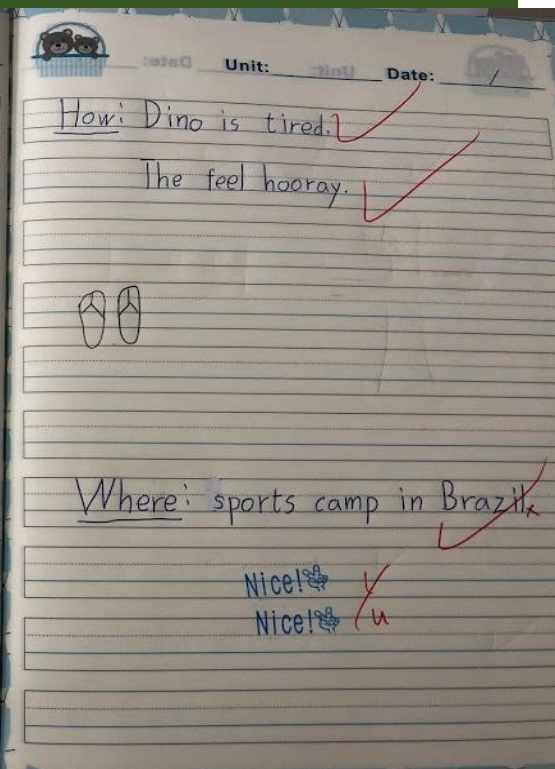 Unit: Date: /
How: Dino is tired.
The feel hooray.
Where: sports camp in Brazil.
Nice!
Nice!